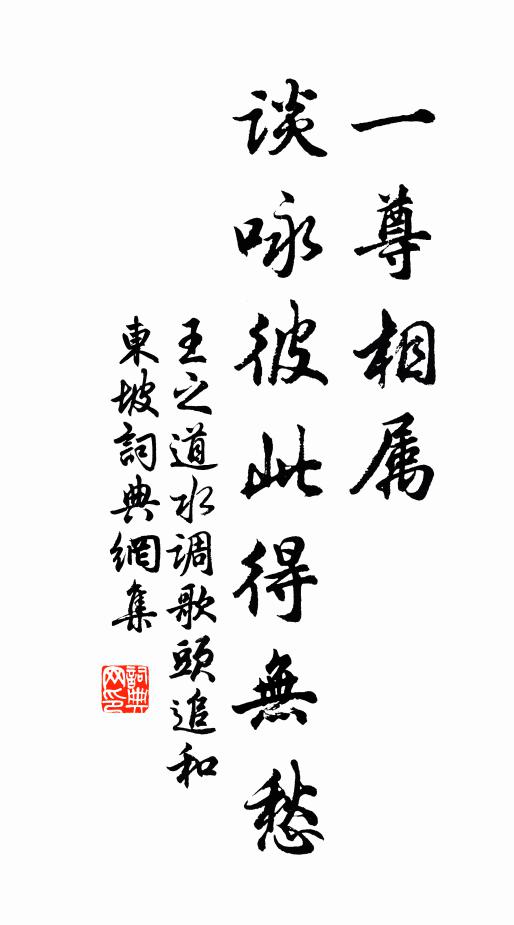 一尊相属
谈咏彼此得無愁
王之道水调歌頭追和
東坡詞典網集
詞典
网印